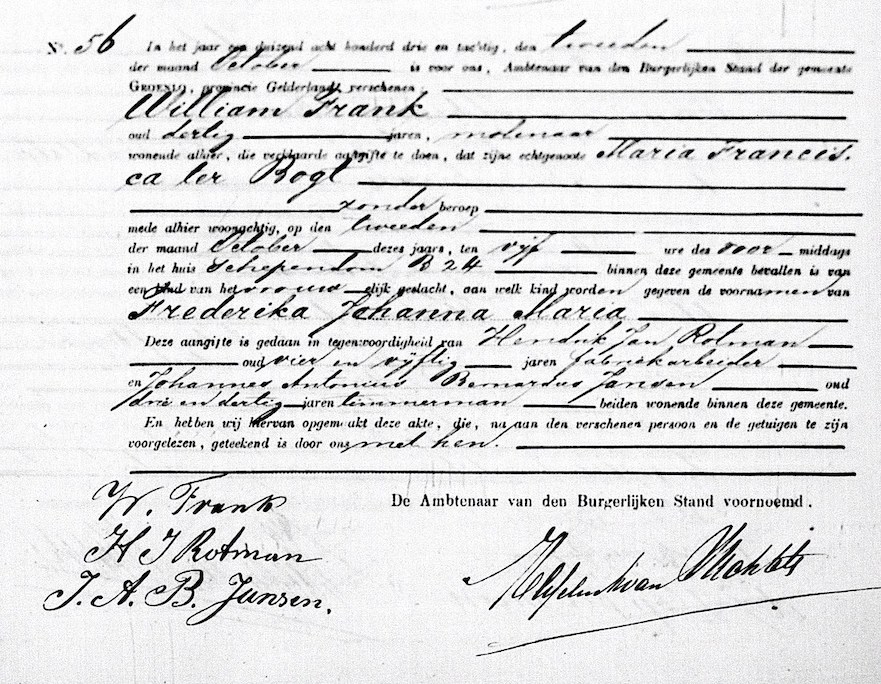 No. 56 In het jaar een duizend acht honderd drie en tachtig, den tweeden
der maand October is voor ons, Ambtenaar van den Burgerlijken Stand der gemeente
GROENLO, provincie Gelderland, verschenen:
William Frank
oud dertig jaren, molenaar
wonende alhier, die verklaarde aangifte te doen, dat zijne echtgenoote Maria Francis.
ca ter Bogt
zonder beroep
mede alhier woonachtig, op den tweeden
der maand October dezes jaars, ten vijf ure des voor middags
in het huis Schependom B 24 binnen deze gemeente bevallen is van
een kind van het vrouwelijk geslacht, aan welk kind worden gegeven de voornamen van
Frederika Johanna Maria
Deze aangifte is gedaan in tegenwoordigheid van Hendrik Jan Rotman
oud vier en vijftig jaren fabriekarbeider
en Johannes Antonius Bernardus Jansen oud
drie en dertig jaren timmerman beiden wonende binnen deze gemeente.
En hebben wij hiervan opgemaakt deze akte, die, na aan den verschenen persoon en de getuigen te zijn
voorgelezen, geteekend is door ons met hen.
W. Frank
De Ambtenaar van den Burgerlijken Stand voornoemd.
H J Rotman
J. A. B. Jansen.